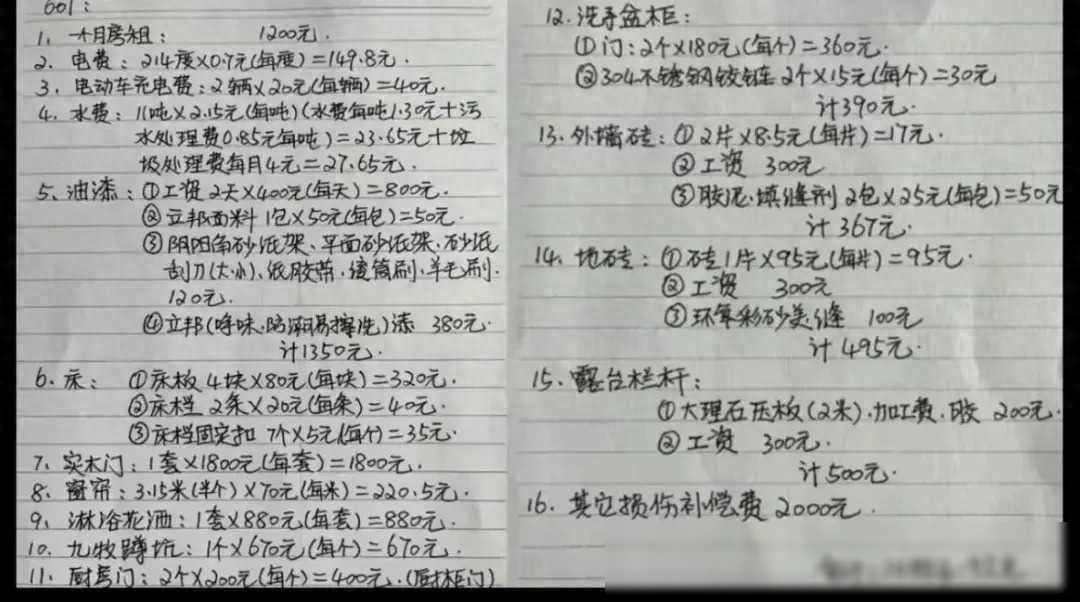 601:
1、一个月房租: 1200元.
2. 电费: 214度×0.7元(每度)=149.8元.
3. 电动车充电费:2辆×20元(每辆)=40元.
4、水费: 11吨×2.15元(每吨)(水费每吨1.30元+污
水处理费0.85元每吨)=23.65元+垃
圾处理费每月4元=27.65元.
5、油漆: ①工资 2天×400元(每天)=800元.
②立邦面料 1包×50元(每包)=50元.
③阴阳角砂纸架、平面砂纸架、砂纸
刮刀(大小)、纸胶带、滚筒刷、羊毛刷.
120元.
④立邦(净味.防潮易擦洗)漆 380元.
计1350元.
6、床: ①床板 4块×80元(每块)=320元.
②床档 2条×20元(每条)=40元.
③床档固定扣 7个×5元(每个)=35元.
7、实木门:1套×1800元(每套)=1800元.
8. 窗帘:3.15米(半个)×70元(每米)=220.5元.
9、淋浴花洒:1套×880元(每套)=880元.
10. 九牧蹲坑:1个×670元(每个)=670元.
11. 厨房门:2个×200元(每个)=400元.(厨柜门)
12. 洗手盆柜:
①门:2个×180元(每个)=360元.
②304不锈钢铰链 2个×15元(每个)=30元
计390元.
13. 外墙砖:①2片×8.5元(每片)=17元.
②工资 300元
③胶泥.填缝剂 2包×25元(每包)=50元
计367元.
14. 地砖:①砖1片×95元(每片)=95元.
②工资 300元
③环氧彩砂美缝 100元
计495元.
15. 露台栏杆:
①大理石压板(2米).加工费.胶 200元.
②工资 300元.
计500元.
16. 其它损伤补偿费 2000元.